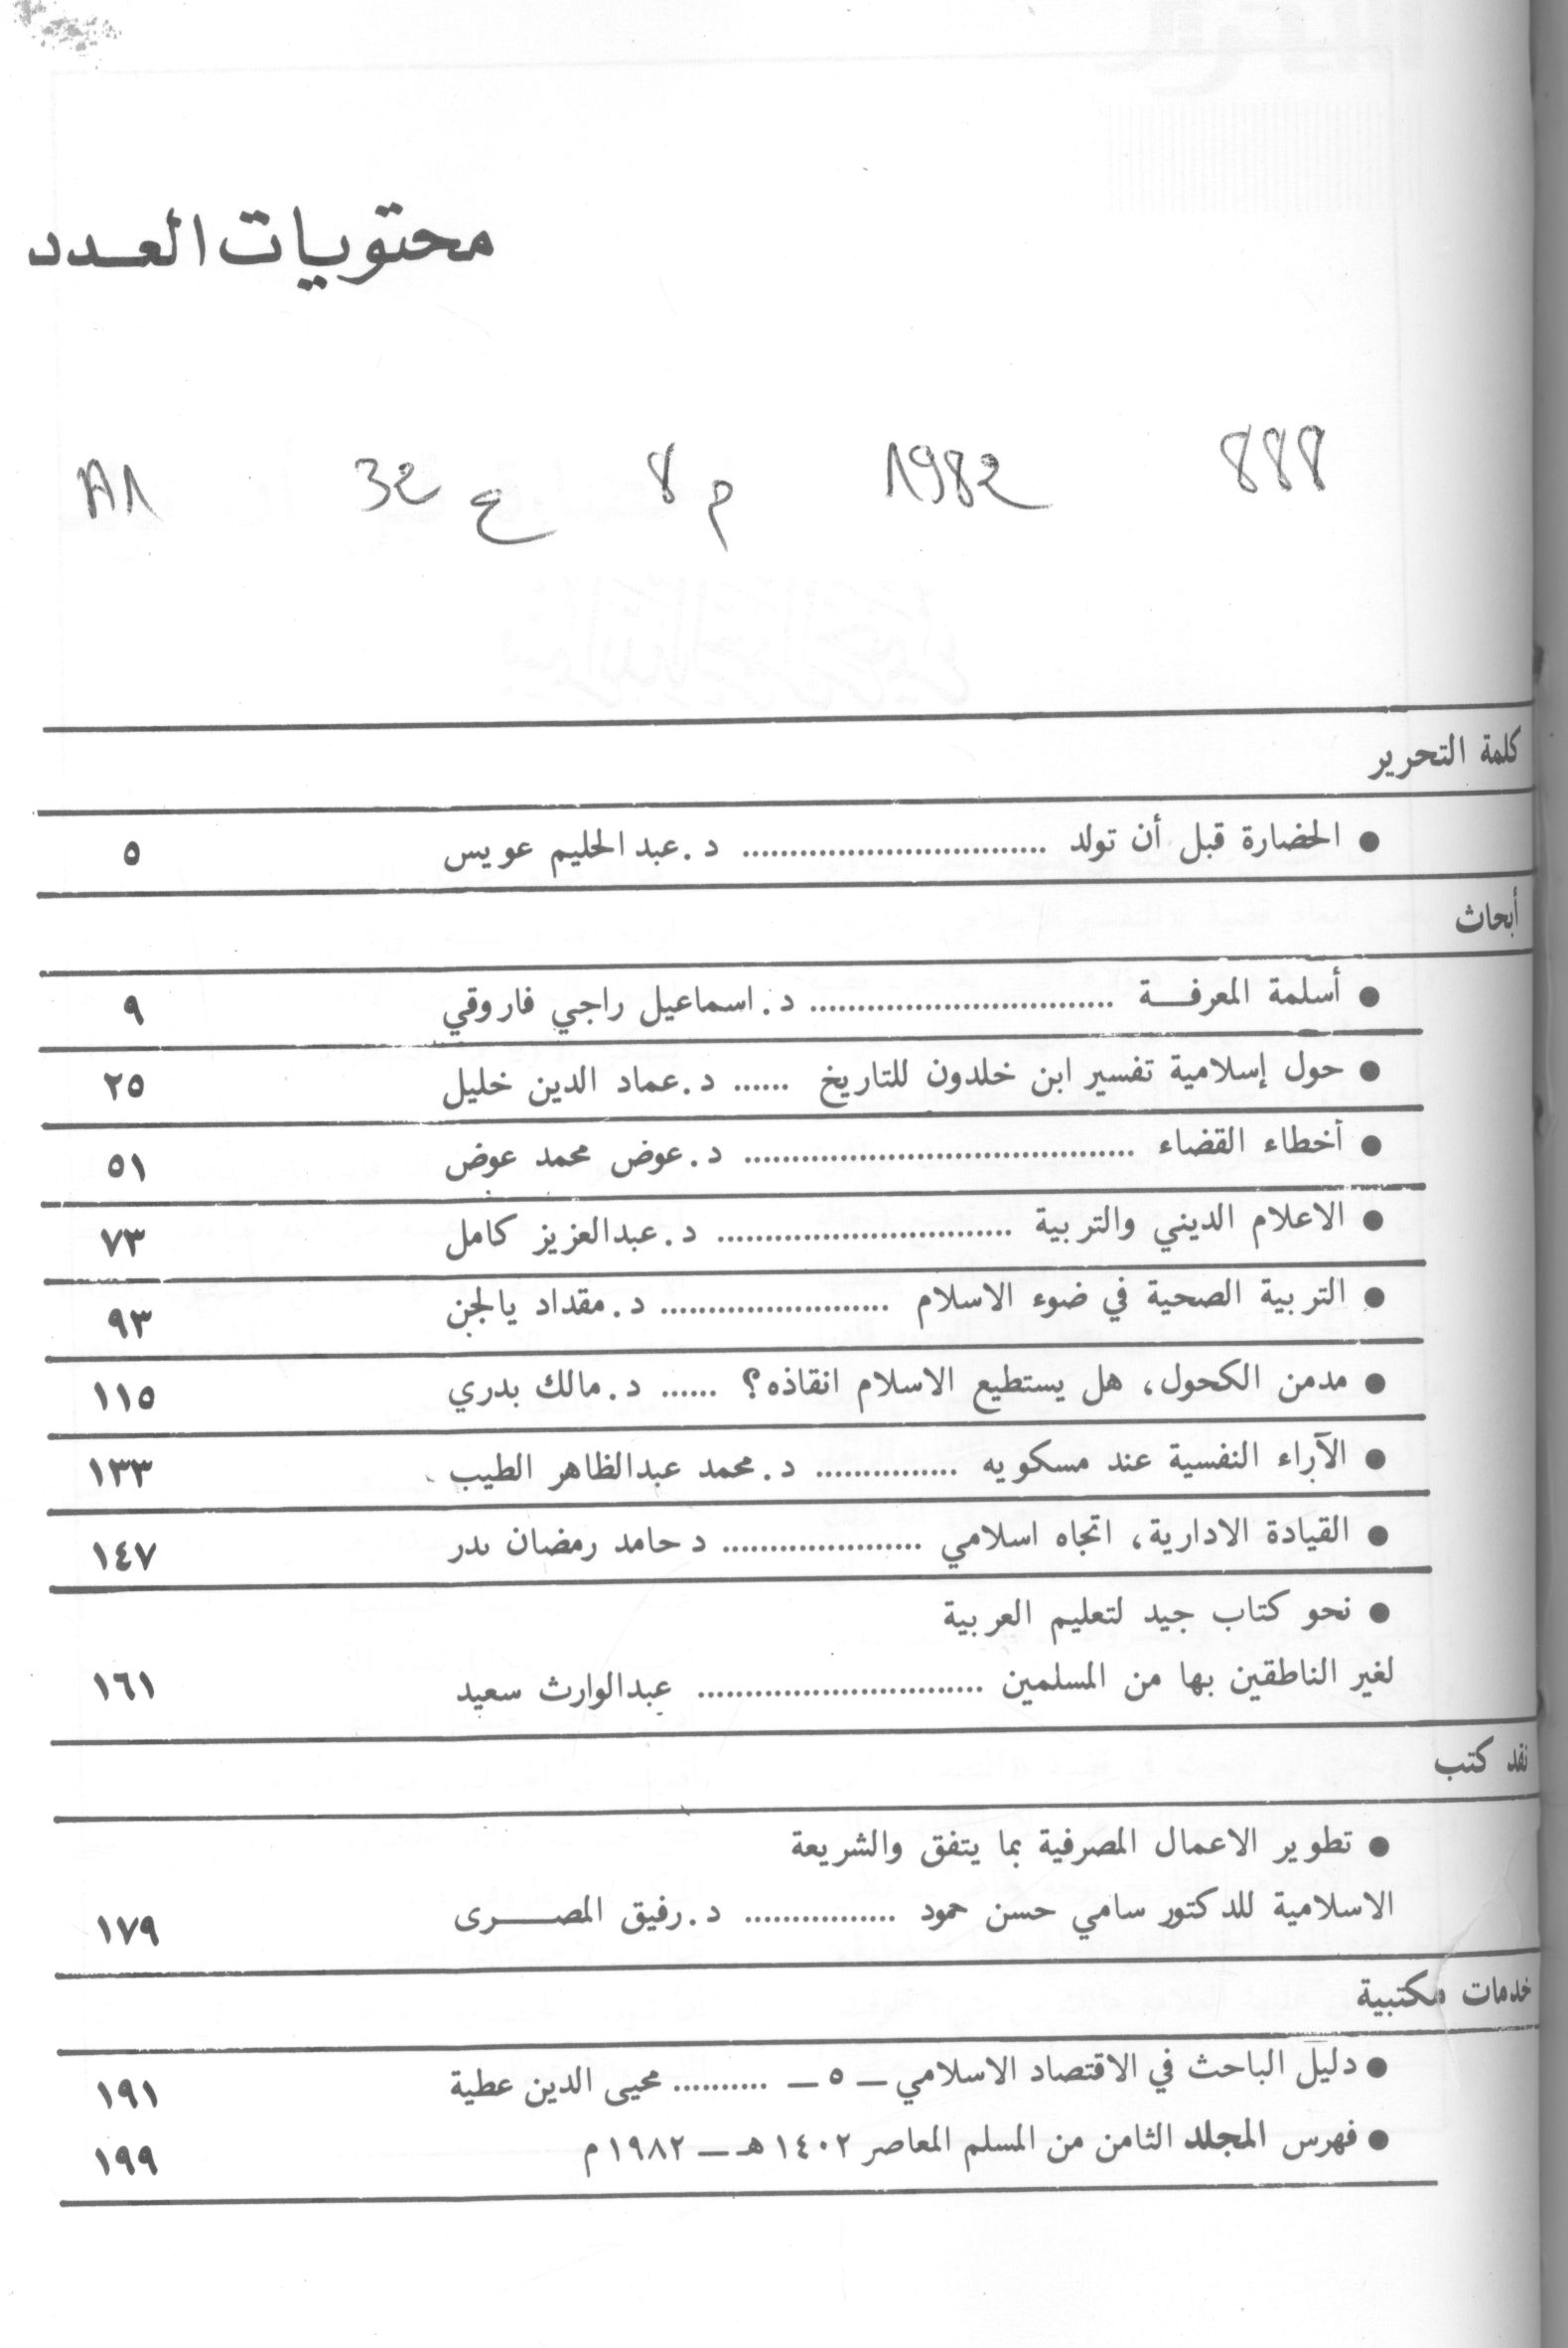 محتويات العدد
888 1982 م 8 ع 32 A1
كلمة التحرير
● الحضارة قبل أن تولد .............................. د. عبد الحليم عويس ٥
أبحاث
● أسلمة المعرفة .............................. د. اسماعيل راجي فاروقي ٩
● حول إسلامية تفسير ابن خلدون للتاريخ ...... د. عماد الدين خليل ٢٥
● أخطاء القضاء ...................................... د. عوض محمد عوض ٥١
● الاعلام الديني والتربية ............................. د. عبدالعزيز كامل ٧٣
● التربية الصحية في ضوء الاسلام ...................... د. مقداد يالجن ٩٣
● مدمن الكحول، هل يستطيع الاسلام انقاذه؟ ...... د. مالك بدري ١١٥
● الآراء النفسية عند مسكويه ............... د. محمد عبدالظاهر الطيب ١٣٣
● القيادة الادارية، اتجاه اسلامي .................... د حامد رمضان بدر ١٤٧
● نحو كتاب جيد لتعليم العربية
لغير الناطقين بها من المسلمين ............................ عبدالوارث سعيد ١٦١
نقد كتب
● تطوير الاعمال المصرفية بما يتفق والشريعة
الاسلامية للدكتور سامي حسن حمود ............... د. رفيق المصرى ١٧٩
خدمات مكتبية
● دليل الباحث في الاقتصاد الاسلامي ــ ٥ ــ .......... محيى الدين عطية ١٩١
● فهرس المجلد الثامن من المسلم المعاصر ١٤٠٢ هـ ــ ١٩٨٢ م ١٩٩